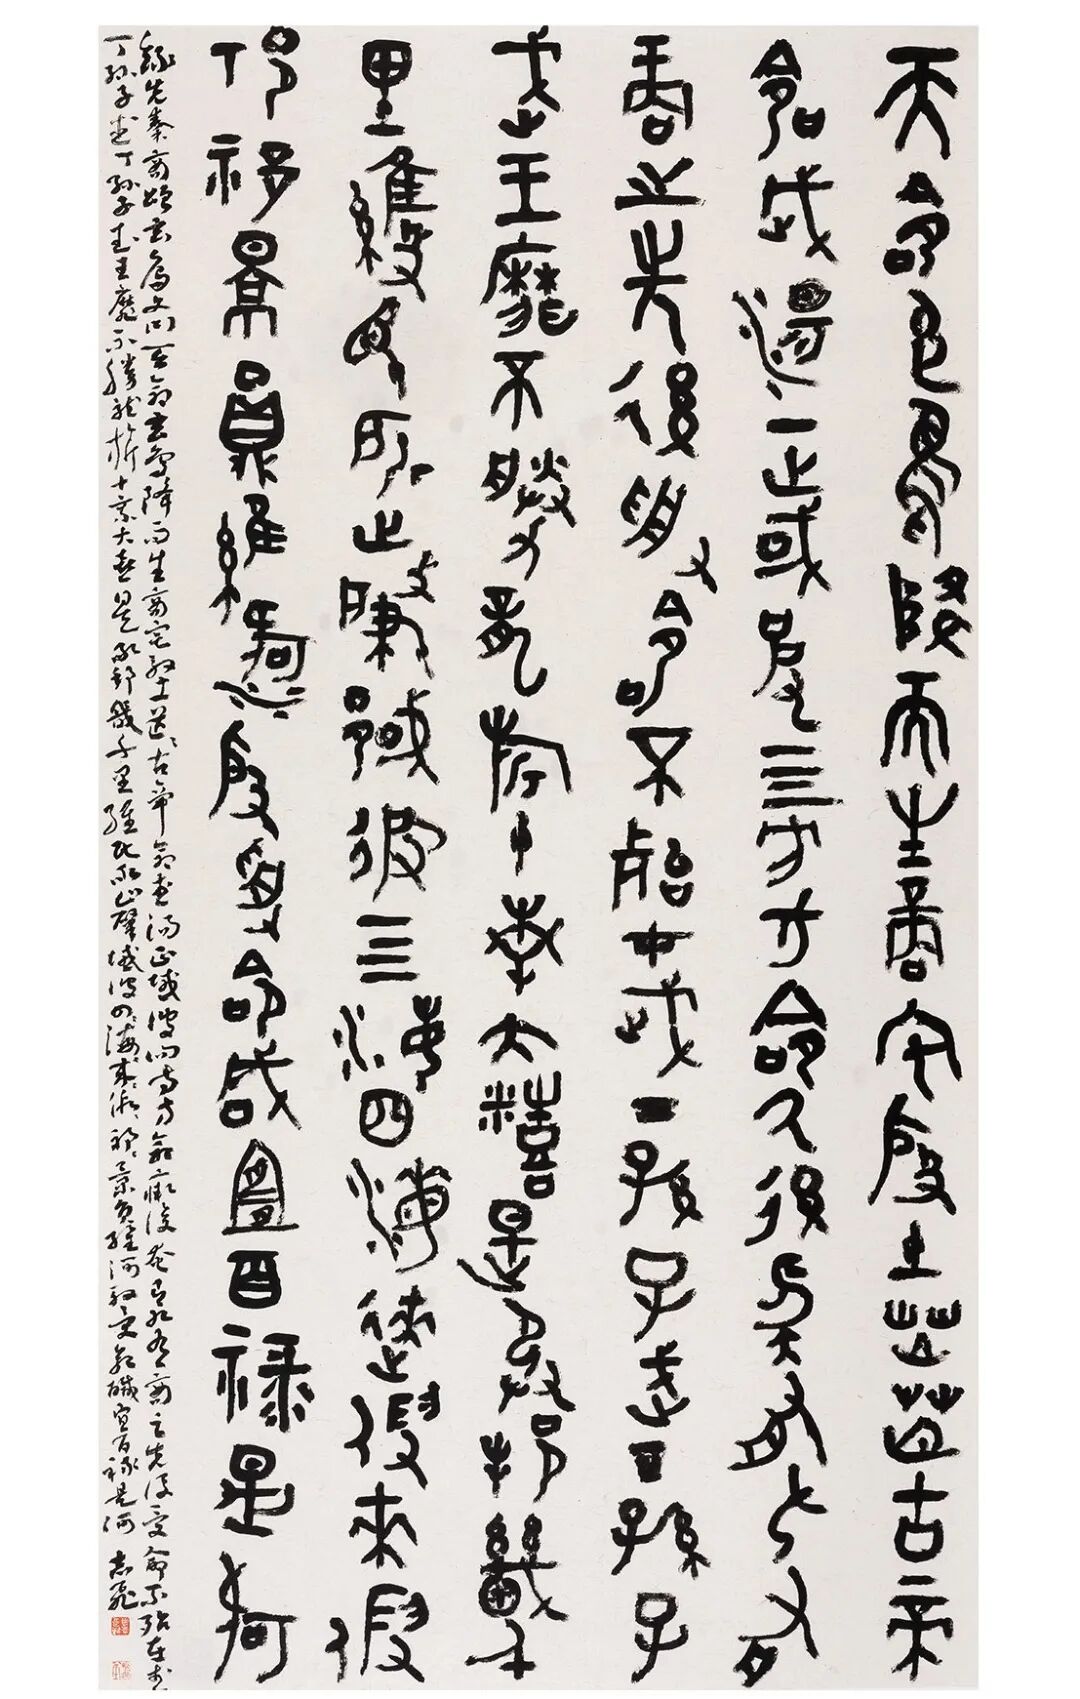 天命玄鳥降而生商宅殷土芒芒古帝
命武湯正域彼四方方命厥後奄有九有
商之先後受命不殆在武丁孫子武丁孫子
武王靡不勝龍旂十乘大糦是承邦畿千
里維民所止肇域彼四海四海來假來假
祁祁景員維河殷受命咸宜百祿是何
錄先秦商頌玄鳥文曰天命玄鳥降而生商宅殷土芒芒古帝命武湯正域彼四方方命厥後奄有九有商之先後受命不殆在武
丁孫子武丁孫子武王靡不勝龍旂十乘大糦是承邦畿千里維民所止肇域彼四海四海來假來假祁祁景員維河殷受命咸宜百祿是何 志飛